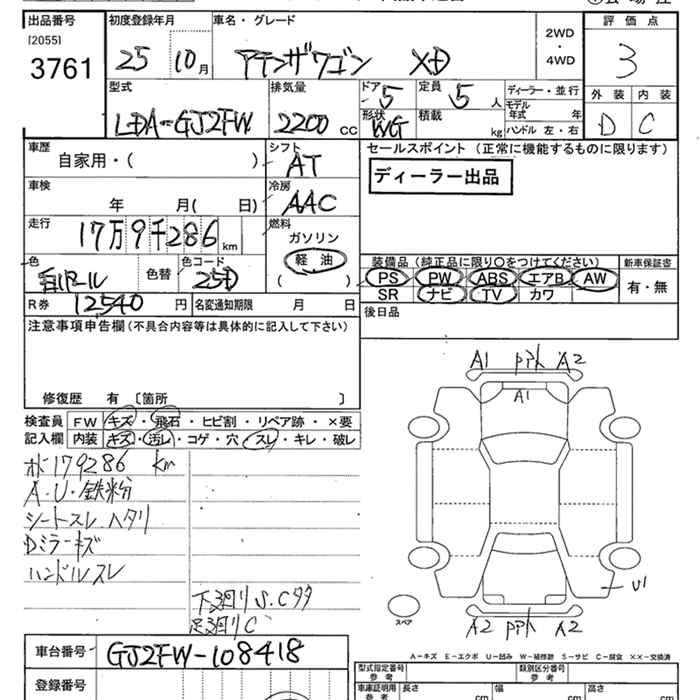 出品番号 初度登録年月 車名・グレード 2WD・4WD 評価点
[2055]
3761 25 10月 アテンザワゴン XD 3
型式 排気量 ドア 5 定員 5人 ディーラー・並行 外装 内装
LDA-GJ2FW 2200cc 形状 WG 積載 kg モデル年式 年 D C
ハンドル 左・右
車歴 シフト セールスポイント (正常に機能するものに限ります)
自家用・( ) AT ディーラー出品
車検 冷房
年 月( 日) AAC
走行 燃料
17万9千286km ガソリン
軽油
( )
装備品 (純正品に限り○をつけてください) 新車保証書
色 色替 色コード PS PW ABS エアB AW 有・無
白パール 25D SR ナビ TV カワ
R券 12540円 名変通知期限 月 日 後日品
注意事項申告欄 (不具合内容等は具体的に記入して下さい)
修復歴 有 〔箇所 〕
検査員 FW キズ・飛石・ヒビ割・リペア跡・×要
記入欄 内装 キズ・汚レ・コゲ・穴・スレ・キレ・破レ
179286 km
A.U・鉄粉
シートスレ.ヘタリ
Dミラーキズ
ハンドルスレ
下回りS.C
足回りC
A1 A2
A1
U1
スペア
A2 A2
車台番号 GJ2FW-108418
A-キズ E-エクボ U-凹み W-補修跡 S-サビ C-腐食 XX-交換済
登録番号 型式指定番号 参考 類別区分番号 参考
車庫証明用 参考 長さ cm 幅 cm 高さ cm